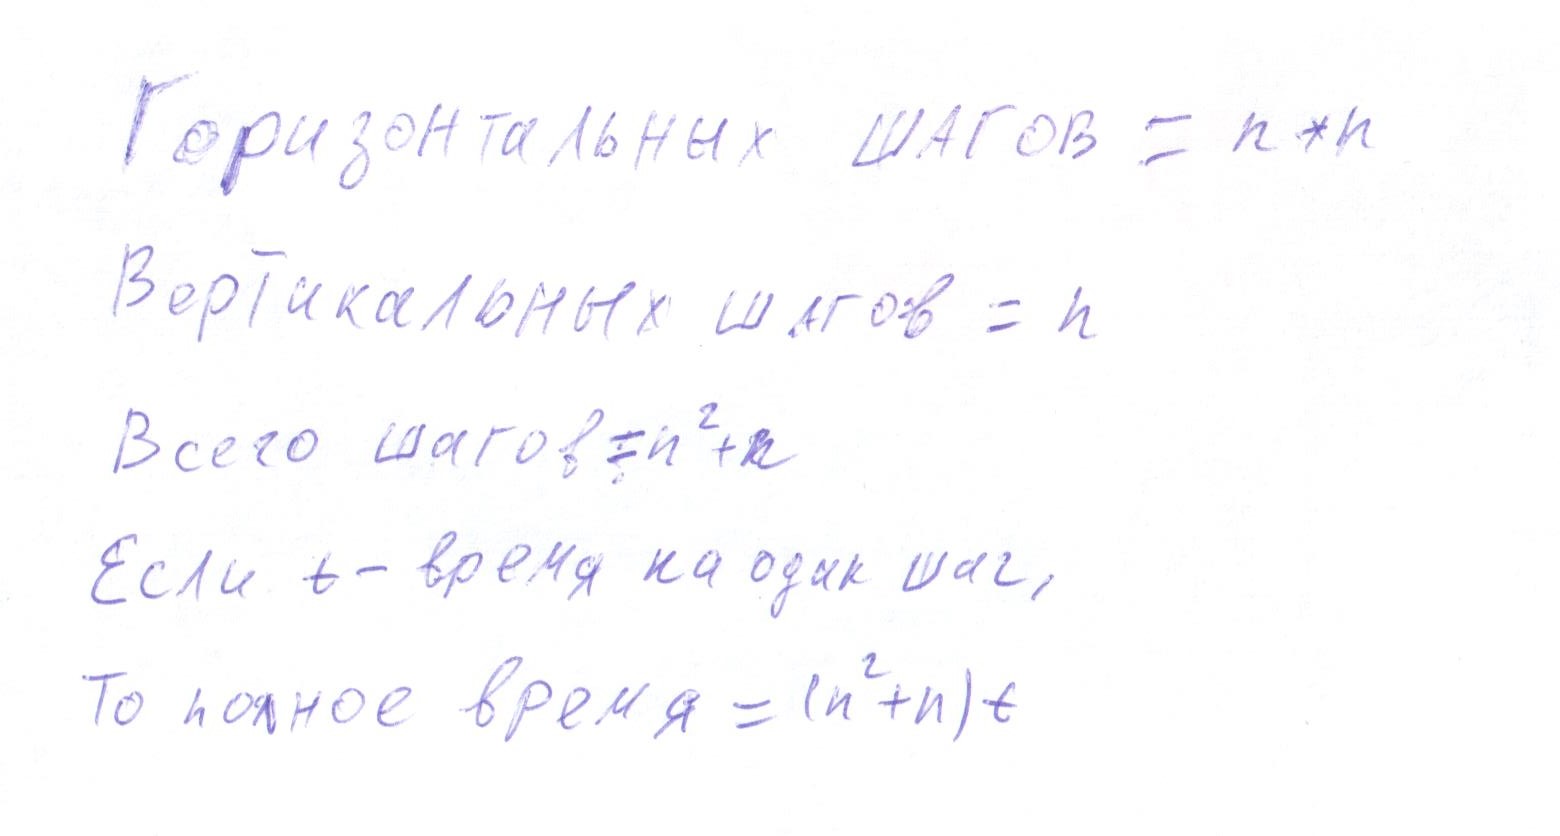 Горизонтальных шагов = n * n
Вертикальных шагов = n
Всего шагов = n² + n
Если t – время на один шаг,
То полное время = (n² + n) t